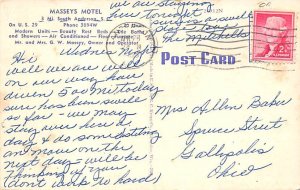 MASSEYS MOTEL
3 Mi. South Anderson, S. C.
On U. S. 29 Phone 3554W
Modern Units - Beauty Rest Beds - Tile Baths
and Showers - Air Conditioned -
Mr. and Mrs. G. W. Massey, Owner and Operator
we are staying
here tonight
on a
the Mitchells
Wednes Night
Hi
well we are well
on our way have
driven 500 mi today
sure has been swell
so far - we may
stay over here a
day & do something
and move on the
next day - will be
thinking of you
(dont work to hard)
POST CARD
2¢
Mrs Allen Baker
Spruce Street
Gallipolis
Ohio